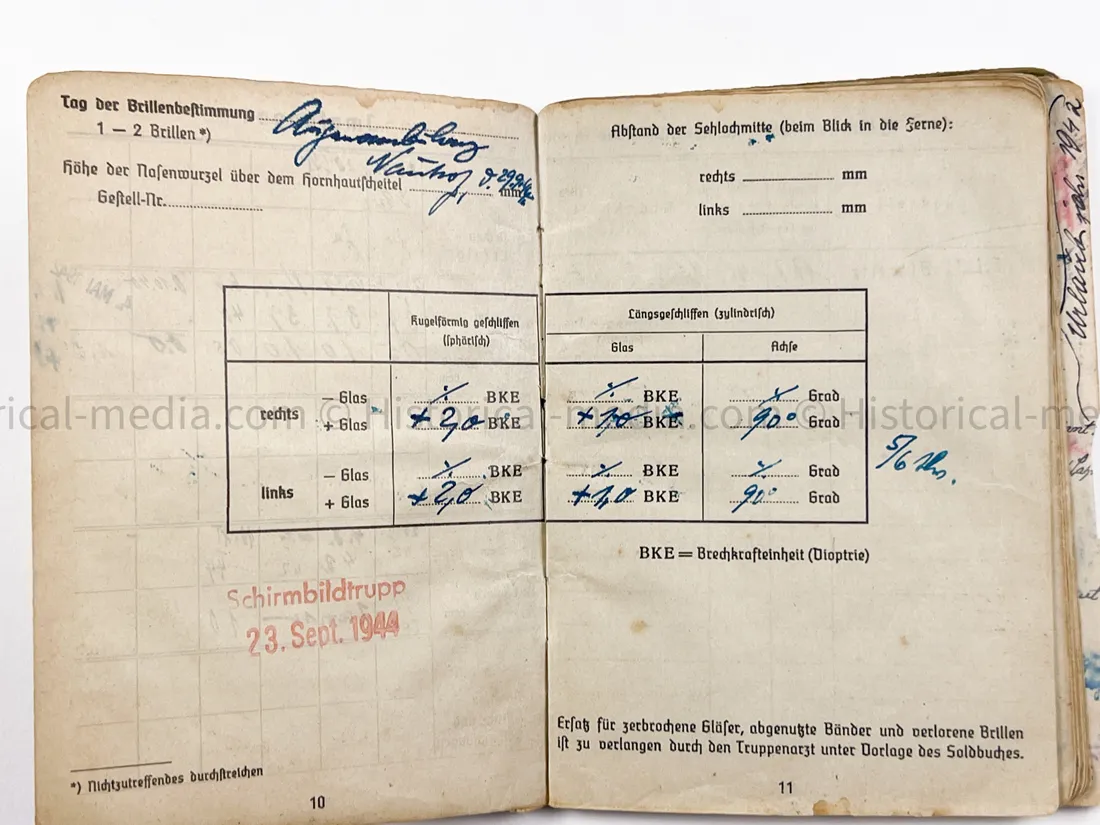 Tag der Brillenbestimmung
1 — 2 Brillen *)
Höhe der Nasenwurzel über dem Hornhautscheitel mm
Gestell-Nr.
Kugelförmig geschliffen
(sphärisch)
rechts
— Glas ./. BKE
+ Glas + 2,0 BKE
links
— Glas ./. BKE
+ Glas + 2,0 BKE
Schirmbildtrupp
23. Sept. 1944
*) Nichtzutreffendes durchstreichen
10
Abstand der Sehlochmitte (beim Blick in die Ferne):
rechts mm
links mm
Längsgeschliffen (zylindrisch)
Glas Achse
./. BKE ./. Grad
+ 1,0 BKE 90° Grad
./. BKE ./. Grad
+ 1,0 BKE 90° Grad
5/6
BKE = Brechkrafteinheit (Dioptrie)
Ersatz für zerbrochene Gläser, abgenutzte Bänder und verlorene Brillen
ist zu verlangen durch den Truppenarzt unter Vorlage des Soldbuches.
11
1942
orical-media.com © Historical-media.com © Historical-me